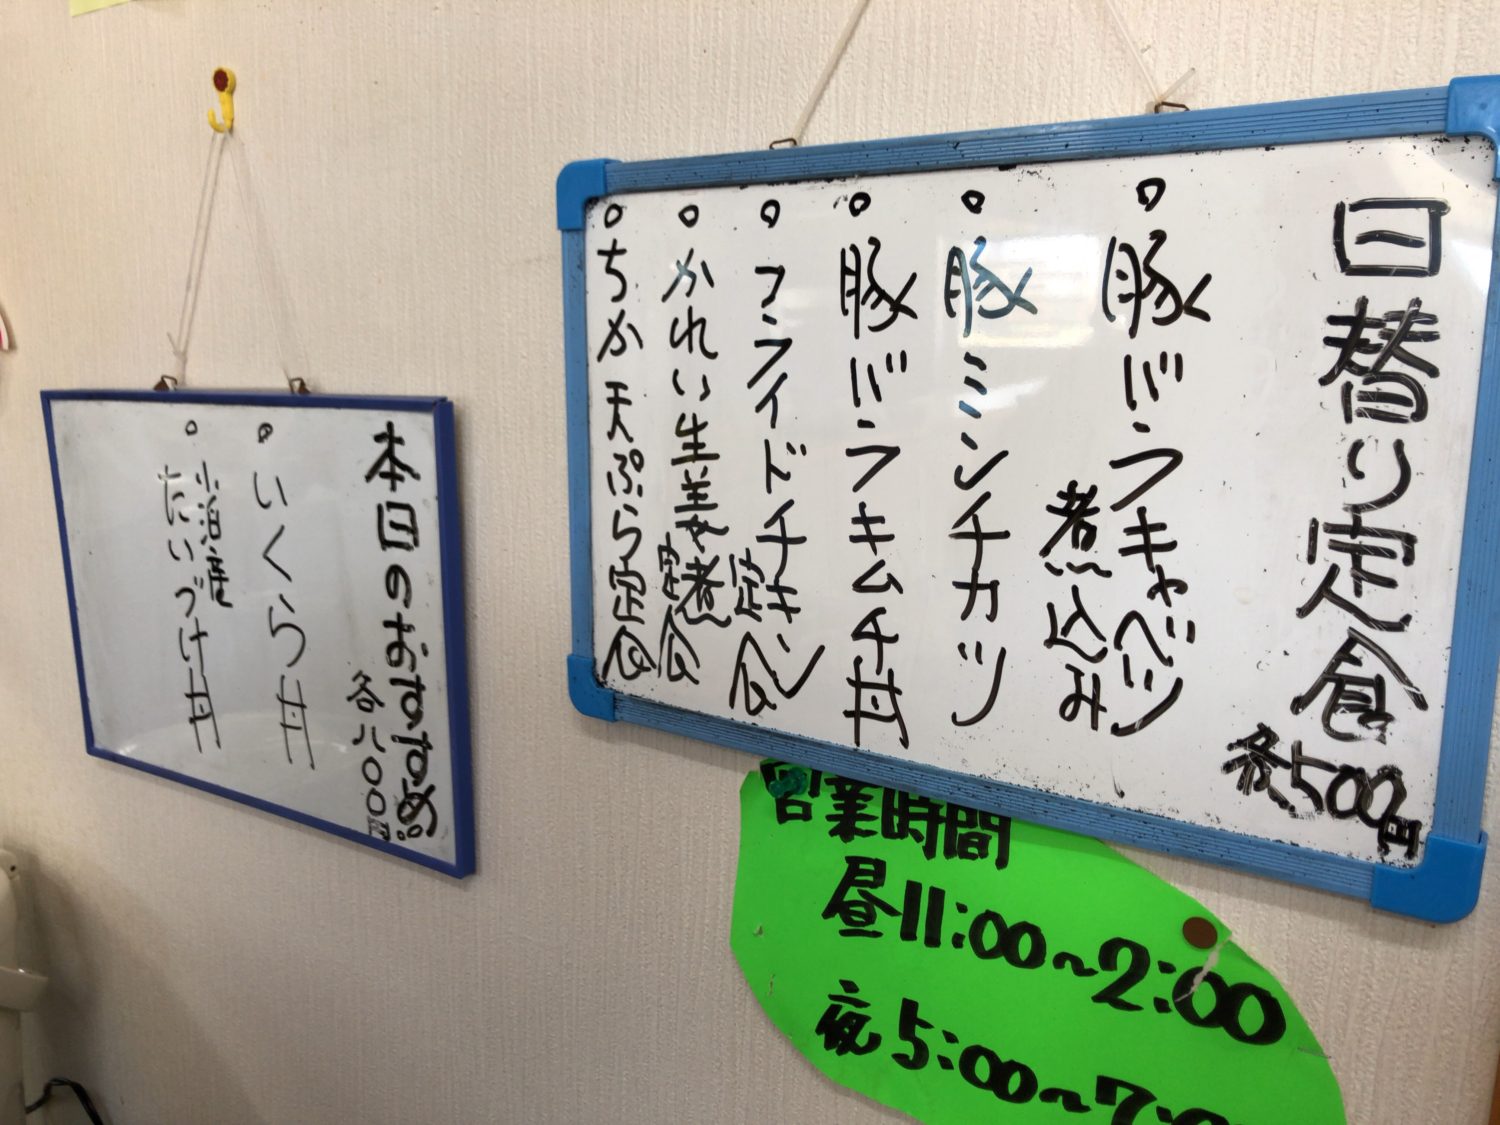 日替り定食
各500円
豚バラキャベツ
煮込み
豚ミンチカツ
豚バラキムチ丼
フライドチキン
定食
かれい生姜煮
定食
ちか天ぷら定食
本日のおすすめ
各八〇〇円
いくら丼
小泊産
たいづけ丼
営業時間
昼11:00～2:00
夜5:00～7:0